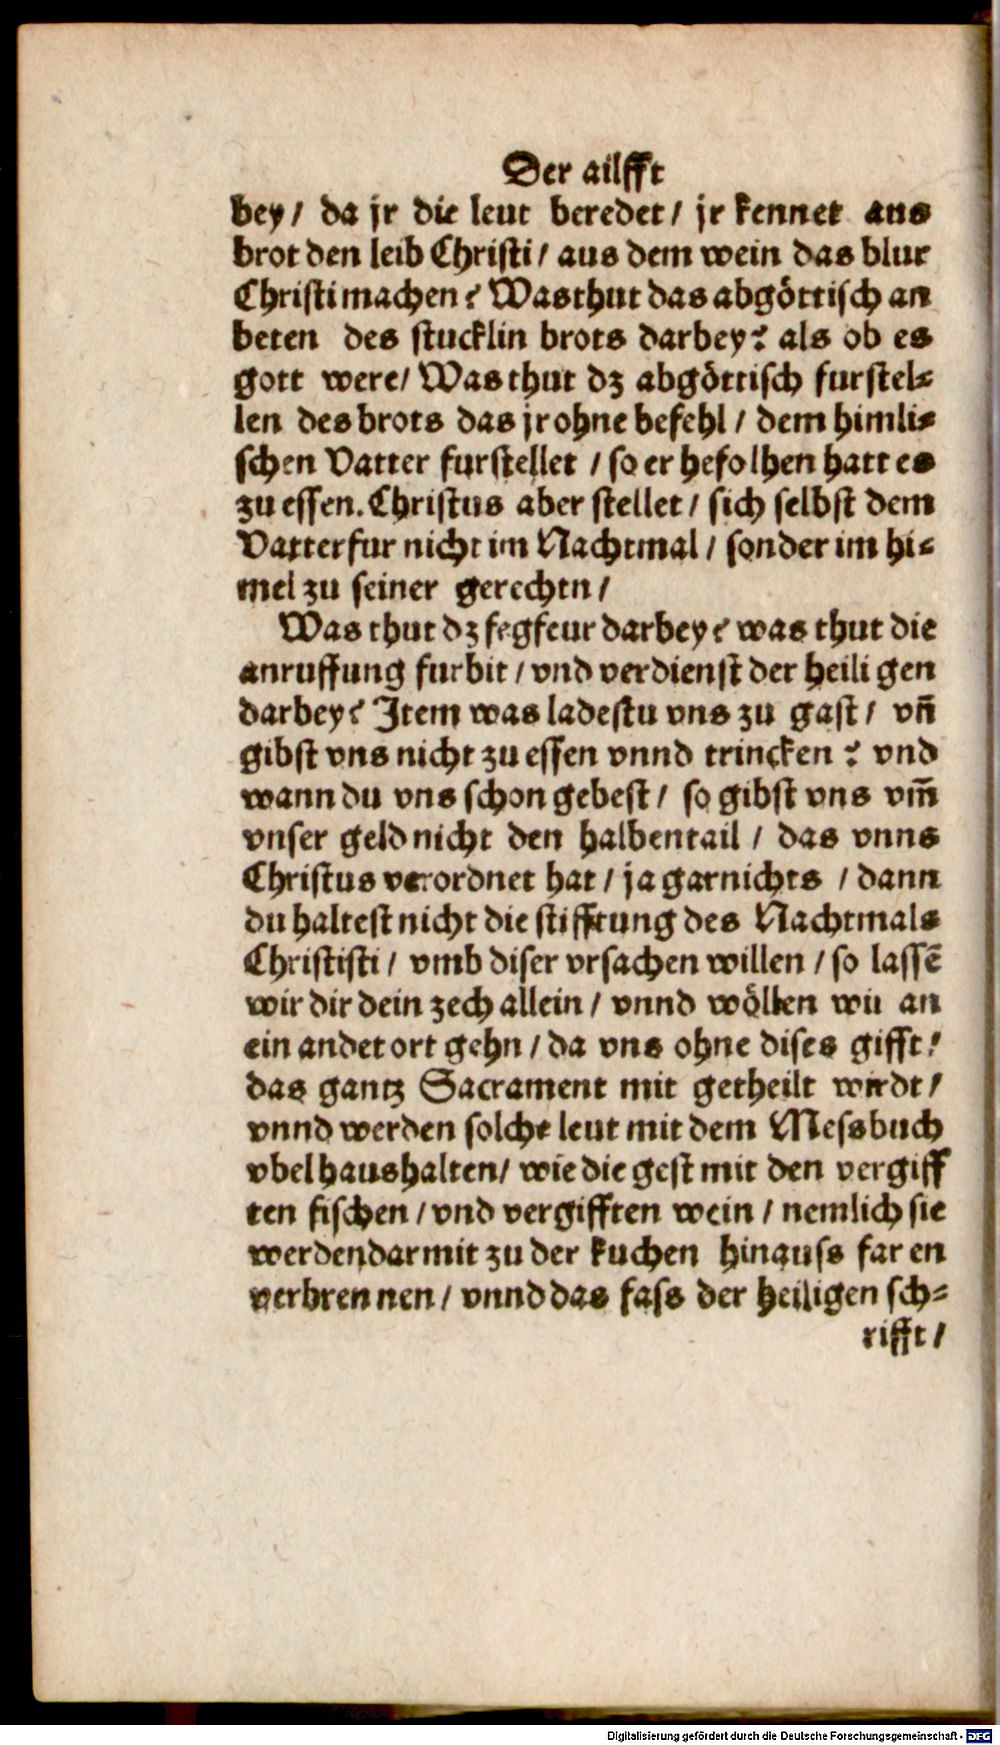 Der ailfft
bey/ da jr die leut beredet/ jr kennet aus
brot den leib Christi/ aus dem wein das blut
Christi machen? Was thut das abgöttisch an
beten des stucklin brots darbey? als ob es
gott were/ Was thut dz abgöttisch furstel⸗
len des brots das jr ohne befehl/ dem himli⸗
schen Vatter furstellet/ so er hefolhen hatt es
zu essen. Christus aber stellet/ sich selbst dem
Vatter fur nicht im Nachtmal/ sonder im hi⸗
mel zu seiner gerechtn/
Was thut dz fegfeur darbey? was thut die
anruffung furbit/ vnd verdienst der heiligen
darbey? Item was ladestu vns zu gast/ vn̄
gibst vns nicht zu essen vnnd trincken? vnd
wann du vns schon gebest/ so gibst vns vm̄
vnser geld nicht den halbentail/ das vnns
Christus verordnet hat/ ja garnichts/ dann
du haltest nicht die stifftung des Nachtmals
Christisti/ vmb diser vrsachen willen/ so lassē
wir dir dein zech allein/ vnnd wöllen wir an
ein andet ort gehn/ da vns ohne dises gifft/
das gantz Sacrament mit getheilt wirdt/
vnnd werden solche leut mit dem Messbuch
vbel haushalten/ wie die gest mit den vergiff
ten fischen/ vnd vergifften wein/ nemlich sie
werden darmit zu der kuchen hinauss faren
verbrennen/ vnnd das fass der heiligen sch⸗
rifft/
Digitalisierung gefördert durch die Deutsche Forschungsgemeinschaft - DFG